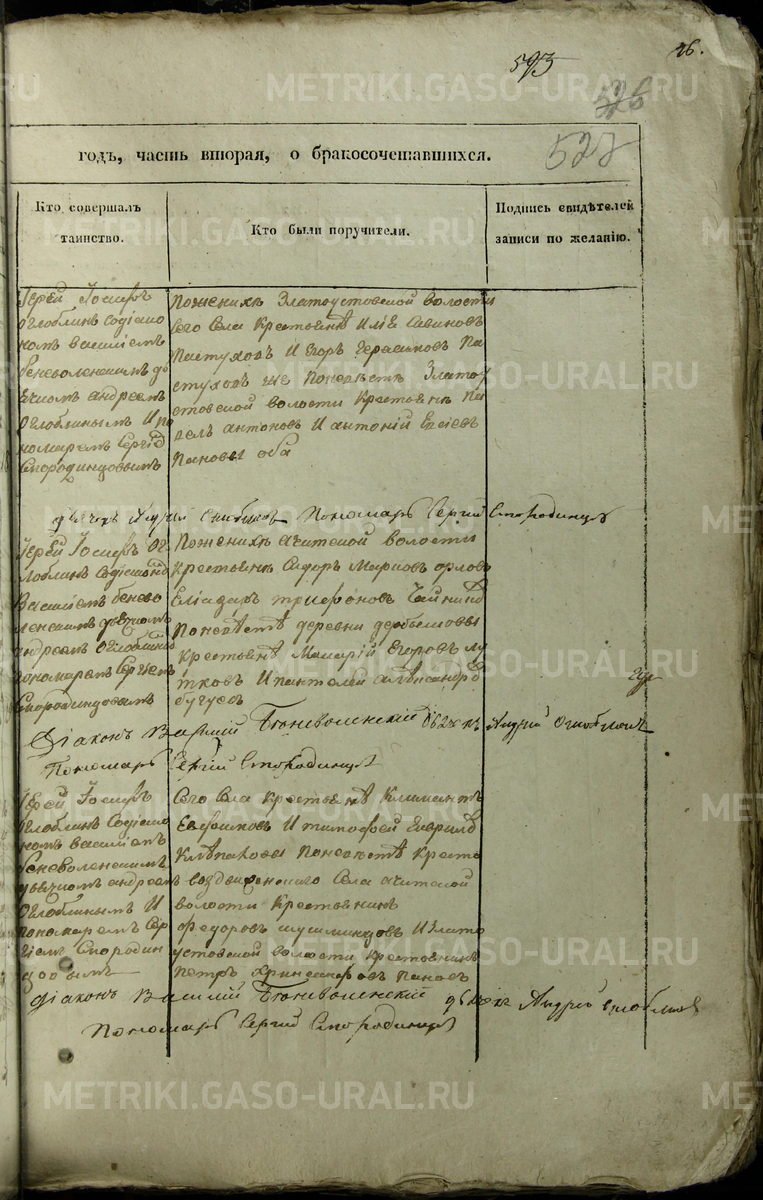 26.
593
526
527
годъ, часть вторая, о бракосочетавшихся.
Кто совершалъ
таинство.
Кто были поручители.
Подпись свидѣтелей
записи по желанію.
Іерей Іосифъ
Оглоблинъ содіако
номъ василіемъ
беневоленскимъ дь
ячкомъ андреемъ
Оглоблинымъ И по
номаремъ Сергіе
Смородинцовымъ
Поженихѣ Златоустовской волости
Сего Села Крестьянѣ Иліе Савиновъ
Пастуховъ И Егоръ Герасимовъ Па
стуховъ же Поневѣстѣ Злато
устовской волости Крестьянѣ Па
велъ антоновъ И антоній
Пановы оба
дьячекъ Андрей Оглоблинъ Пономарь Сергий Смородинцовъ
Іерей Іосифъ Ог
лоблинъ Содіакономъ
Василіемъ бенево
ленскимъ дьячкомъ
андреемъ Оглоблиным
пономаремъ Сергіемъ
Смородинцовымъ
Поженихѣ ачитской волости
Крестьянѣ Сидоръ Марковъ орловъ
Елиазаръ трифоновъ
Поневѣстѣ деревни
Крестьянѣ Макарій Егоровъ лу
тковъ Ипантелей александров
бугуевъ
Діаконъ Василий Беневоленский дьячекъ Андрей Оглоблинъ
Пономарь Сергий Смородинцовъ
Іерей Іосифъ
Оглоблинъ Содіако
номъ василіемъ
беневоленскимъ
дьячкомъ андреемъ
Оглоблинымъ И
пономаремъ Сер
гіемъ Смородин
цовымъ
Сего Села Крестьянѣ Климантъ
Евфимовъ И тимофей Гаврилов
Поневѣстѣ Кресто
воздвиженского Села ачитской
волости Крестьянинъ
Федоровъ И Злато
устовской волости Крестьянинъ
Петръ Хрисанфовъ Пановъ
Діаконъ Василий Беневоленский дьячекъ Андрей Оглоблинъ
Пономарь Сергий Смородинцовъ
METRIKI.GASO-URAL.RU